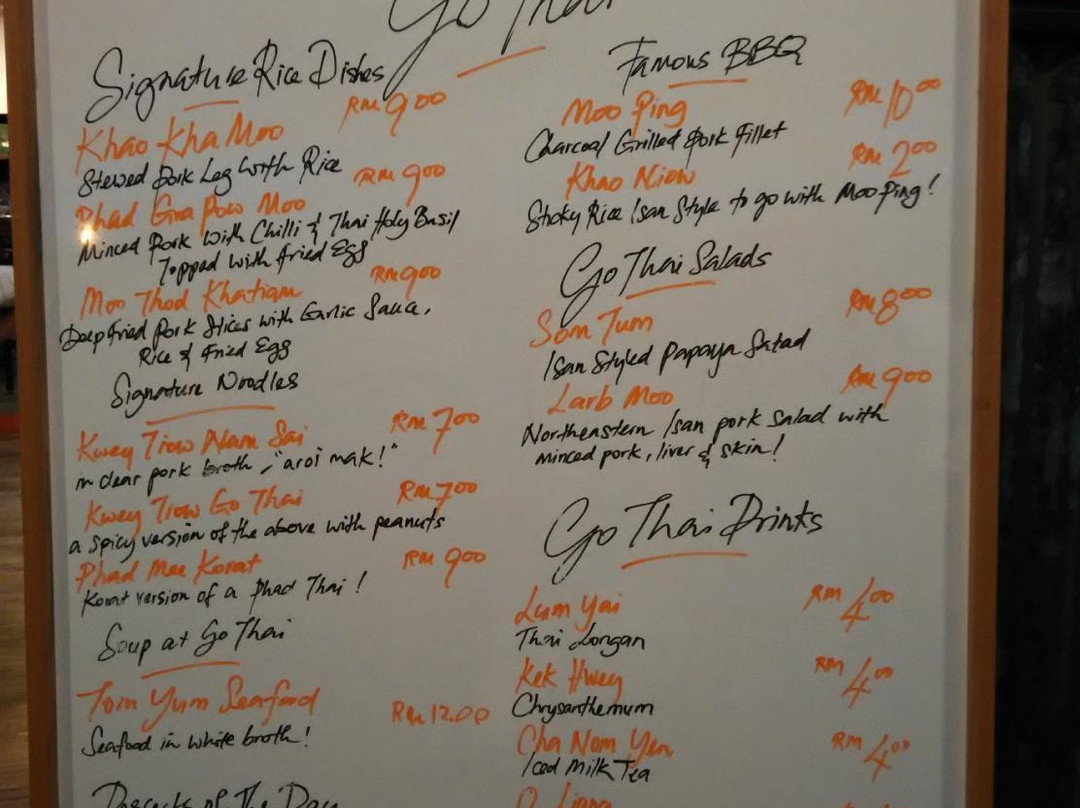 Go Thai
Signature Rice Dishes
Khao Kha Moo RM 9.00
Stewed Pork Leg with Rice
Phad Gra Pow Moo RM 9.00
Minced Pork with Chilli & Thai Holy Basil
Topped with fried Egg
Moo Thod Khatiam RM 9.00
Deep fried Pork Slices with Garlic Sauce,
Rice & Fried Egg
Signature Noodles
Kwey Tiow Nam Sai RM 7.00
in clear pork broth, "aroi mak!"
Kwey Tiow Go Thai RM 7.00
a spicy version of the above with peanuts
Phad Mee Korat RM 9.00
Korat version of a Phad Thai!
Soup at Go Thai
Tom Yum Seafood RM 12.00
Seafood in white broth!
Deserts of The Day
Famous BBQ
Moo Ping RM 10.00
Charcoal Grilled Pork Fillet
Khao Niow RM 2.00
Sticky Rice Isan Style to go with Moo Ping!
Go Thai Salads
Som Tum RM 8.00
Isan Styled Papaya Salad
Larb Moo RM 9.00
Northeastern Isan pork salad with
minced pork, liver & skin!
Go Thai Drinks
Lum Yai RM 4.00
Thai Longan
Kek Hwey RM 4.00
Chrysanthemum
Cha Nom Yen RM 4.00
Iced Milk Tea